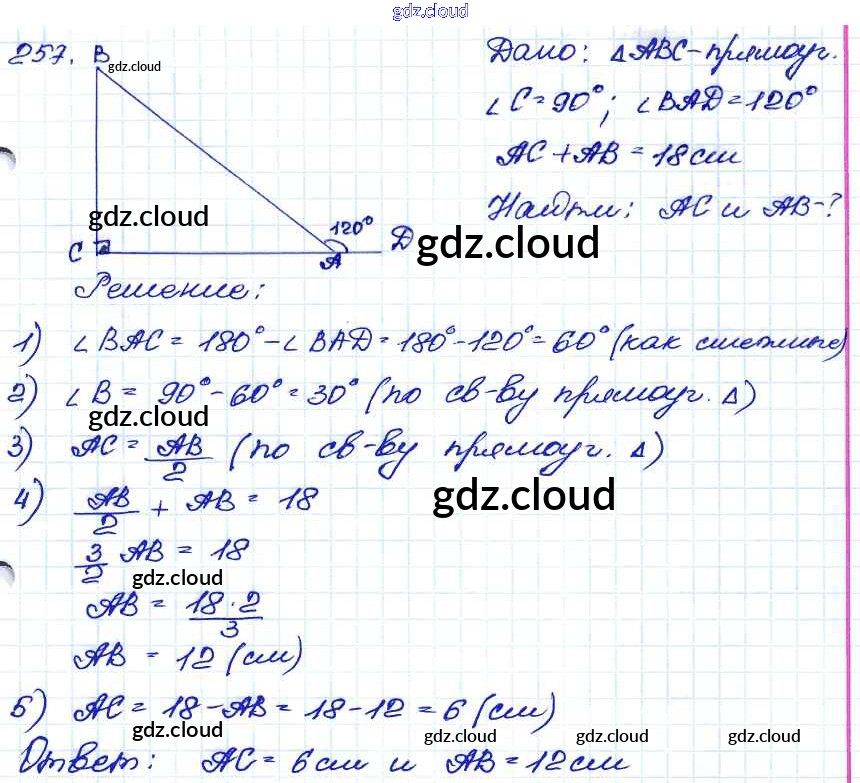 gdz.cloud
257. B
gdz.cloud
Дано: △ABC-прямоуг.
∠C=90°; ∠BAD=120°
AC+AB=18см
Найти: AC и AB-?
gdz.cloud
120°
C A D
gdz.cloud
Решение:
1) ∠BAC = 180°-∠BAD=180°-120°=60° (как смежные)
2) ∠B = 90°-60°=30° (по св-ву прямоуг. △)
gdz.cloud
3) AC = AB/2 (по св-ву прямоуг. △)
4) AB/2 + AB = 18
gdz.cloud
3/2 AB = 18
gdz.cloud
AB = 18·2/3
AB = 12 (см)
5) AC = 18-AB = 18-12 = 6 (см)
gdz.cloud gdz.cloud gdz.cloud gdz.cloud
Ответ: AC = 6 см и AB = 12 см